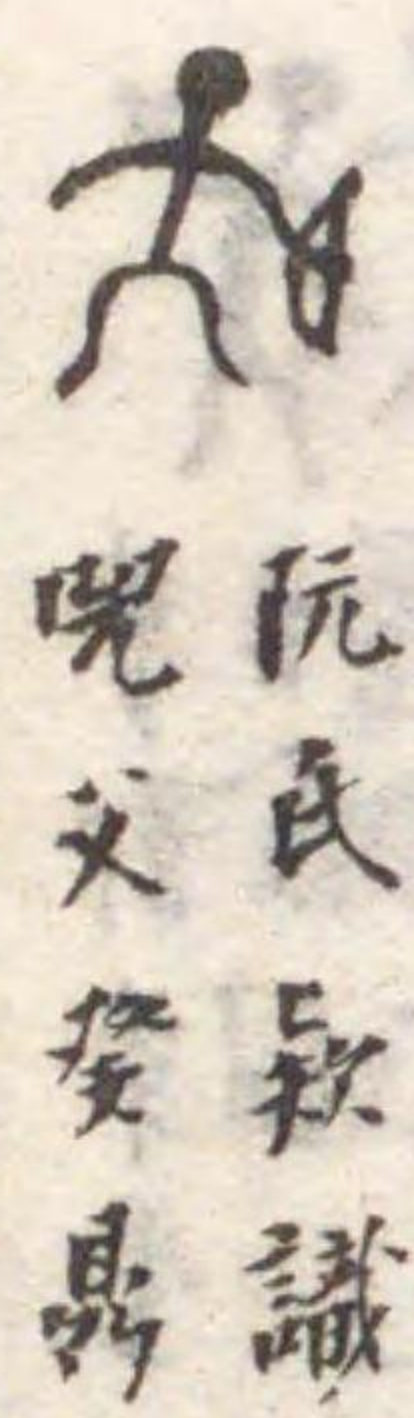 阮氏欵識
兕父癸鼎